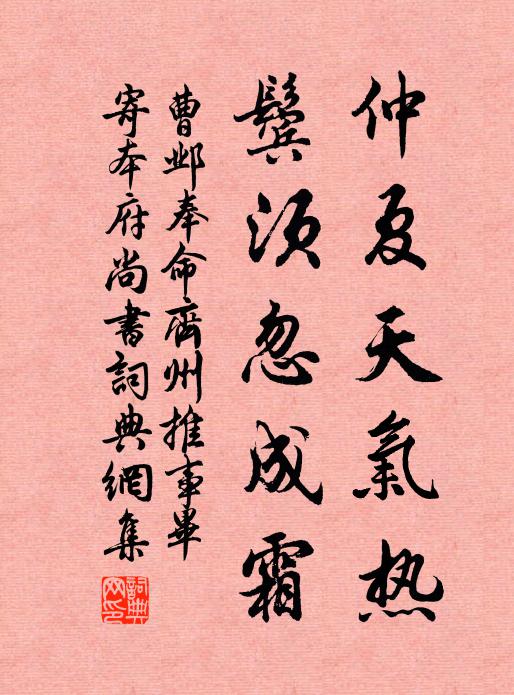 仲夏天氣热
鬓须忽成霜
曹邺奉命齊州推事畢
寄本府尚書詞典網集
詞典网印